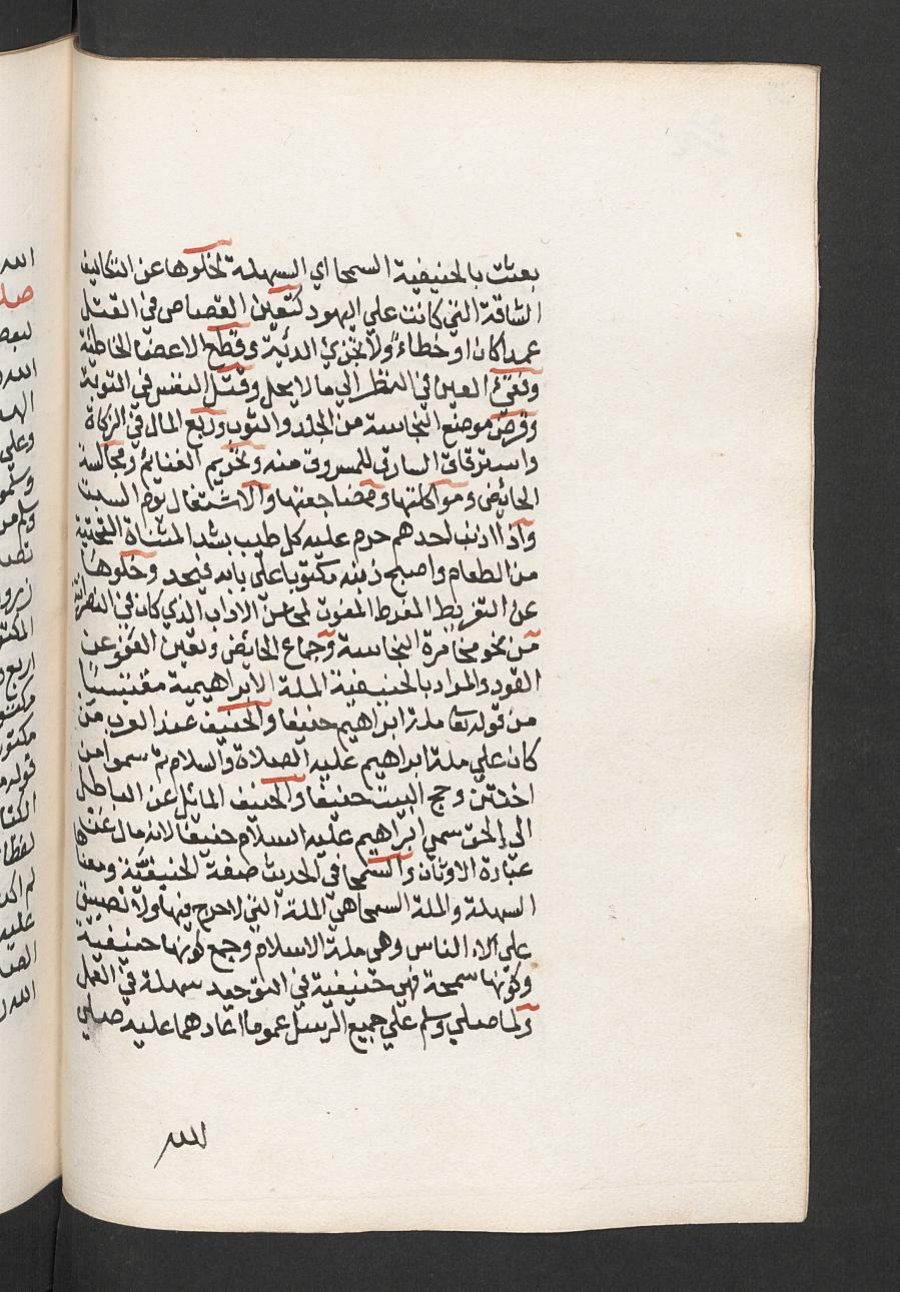 بعثت بالحنيفية السمحا اي السهلة لخلوها عن التكاليف
الشاقة التي كانت علي اليهود كتعين القصاص في القتل
عمدا كان او خطاء ولا تجزي الدئية وقطع الاعضا الخاطئة
وفقيء العين في النظر الي ما لا يحل وقتل النفس في التوبة
وقرض موضع النجاسة من الجلد والثوب وربع المال في الزكاة
واسترقاق السارق للمسروق منه وتحريم الغنائم ومجالسة
الحائض ومواكلتها ومضاجعتها والاشتغال يوم السبت
واذا اذنب احدهم حرم عليه كل طيب بشد المثناة التحتية
من الطعام واصبح ذنبه مكتوبا علي بابه فيحد وخلوها
عن التفريط المفرط المفوت لمحاسن الاداب الذي كان في النصرانية
من نحو مخامرة النجاسة وجماع الحائض وتعين العفو عن
القود والمراد بالحنيفية الملة الابراهيمية مقتبسا
من قوله تعا ملة ابراهيم حنيفا والحنيف عند العرب من
كان علي ملة ابراهيم عليه الصلاة والسلام ثم سموا من
اختتن وحج البيت حنيفا والحنيف المائل عن الباطل
الي الحق سمي ابراهيم عليه السلام حنيفا لانه مال عن
عبادة الاوثان والسمحا في الحديث صفة الحنيفية ومعناها
السهلة والملة السمحا هي الملة التي لا حرج فيها ولا تضييق
علي الناس وهي ملة الاسلام وجمع كونها حنيفية
وكونها سمحة فهي حنيفية في التوحيد سهلة في العمل
ولما صلي وسلم علي جميع الرسل عموما اعادهما عليه صلي
الله